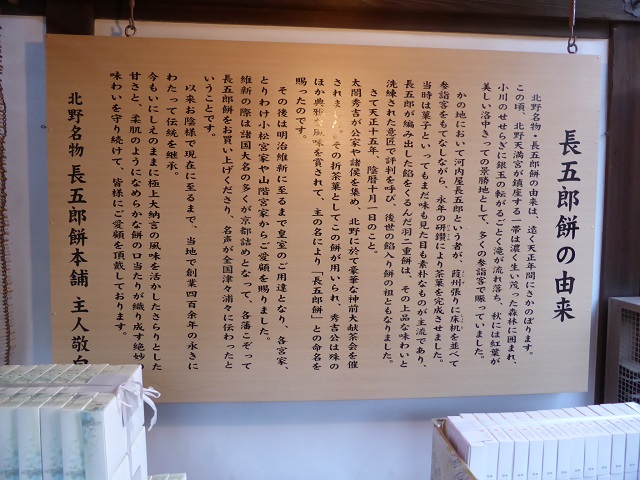 長五郎餅の由来
北野名物・長五郎餅の由来は、遠く天正年間にさかのぼります。
この頃、北野天満宮が鎮座する一帯は濃く生い茂った森林に囲まれ、
小川のせせらぎに銀玉の転がるごとく滝が流れ落ち、秋には紅葉が
美しい洛中きっての景勝地として、多くの参詣客で賑っていました。
かの地において河内屋長五郎という者が、葭州張りに床机を並べて
参詣客をもてなしながら、永年の研鑽により茶菓を完成させました。
当時は菓子といってもまだ味も見た目も素朴なものが主流であり、
長五郎が編み出した餡をくるんだ羽二重餅は、その上品な味わいと
洗練された意匠で評判を呼び、後世の餡入り餅の祖ともなりました。
さて天正十五年、陰暦十月一日のこと。
太閤秀吉が公家や諸侯を集め、北野に於て豪華な神前大献茶会を催
されました。その折茶菓としてこの餅が用いられ、秀吉公は味の
ほか典雅な風味を賞されて、主の名により「長五郎餅」との命名を
賜ったのです。
その後は明治維新に至るまで皇室のご用達となり、各宮家、
とりわけ小松宮家や山階宮家からご愛顧を賜りました。
維新の際は諸国大名の多くが京都詰めとなって、各藩こぞって
長五郎餅をお買い上げくださり、名声が全国津々浦々に伝わったと
いうことです。
以来お陰様で現在に至るまで、当地で創業四百余年の永きに
わたって伝統を継承。
今もいにしえのままに極上大納言の風味を活かしたさらりとした
甘さと、柔肌のようになめらかな餅の口当たりが織り成す絶妙の
味わいを守り続けて、皆様にご愛顧を頂戴しております。
北野名物 長五郎餅本舗 主人敬白